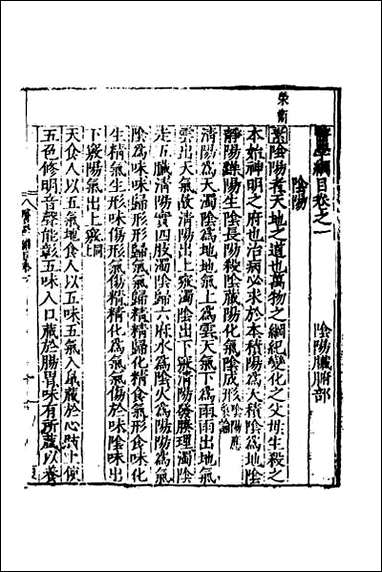 醫學綱目卷之一　陰陽臟腑部
陰陽
榮衛
素陰陽者天地之道也萬物之綱紀變化之父母生殺之
本始神明之府也治病必求於本積陽為天積陰為地陰
靜陽躁陽生陰長陽殺陰藏陽化氣陰成形陰陽應象論
清陽為天濁陰為地地氣上為雲天氣下為雨雨出地氣
雲出天氣故清陽出上竅濁陰出下竅清陽發腠理濁陰
走五臟清陽實四肢濁陰歸六府水為陰火為陽陽為氣
陰為味味歸形形歸氣氣歸精精歸化精食氣形食味化
生精氣生形味傷形氣傷精精化為氣氣傷於味陰味出
下竅陽氣出上竅同上
天食人以五氣地食人以五味五氣入鼻藏於心肺上使
五色修明音聲能彰五味入口藏於腸胃味有所藏以養